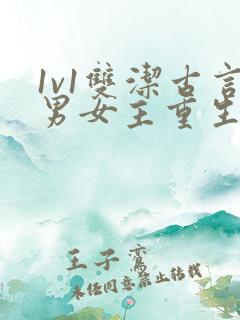 1v1雙潔古言
男女主重生
王子鸞
未經同意禁止转载